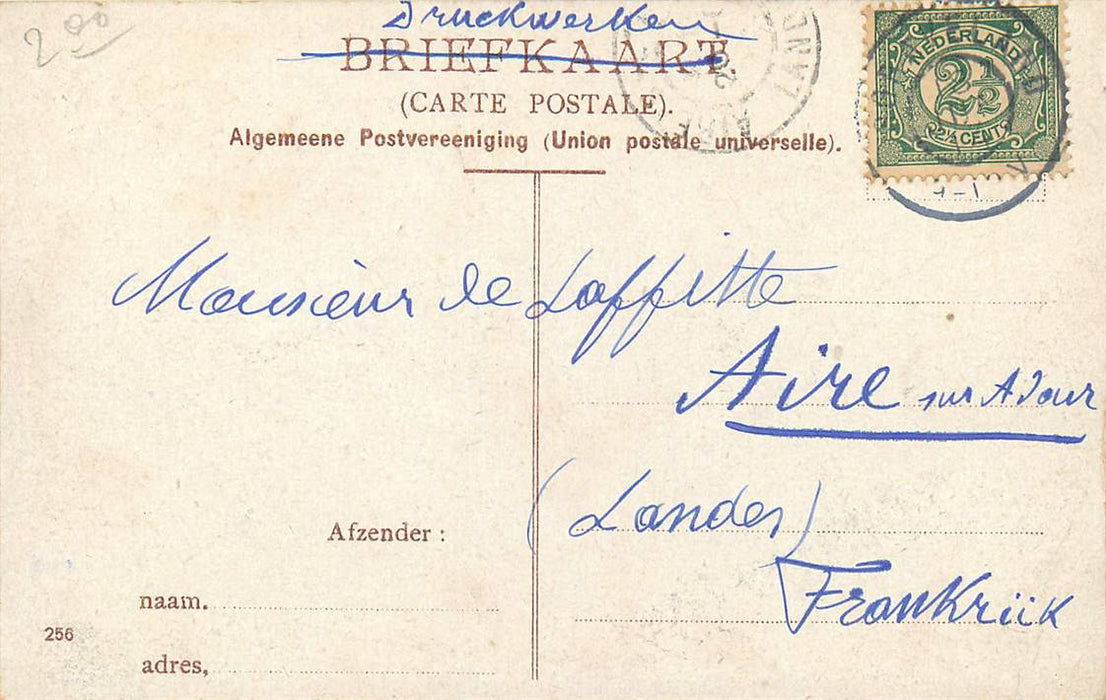 2.00
Drukwerken
BRIEFKAART.
(CARTE POSTALE).
Algemeene Postvereeniging (Union postale universelle).
NEDERLAND
2½
2½ CENT
Monsieur de Laffitte
Aire sur Adour
(Landes)
Frankrijk
Afzender :
naam.
256
adres,